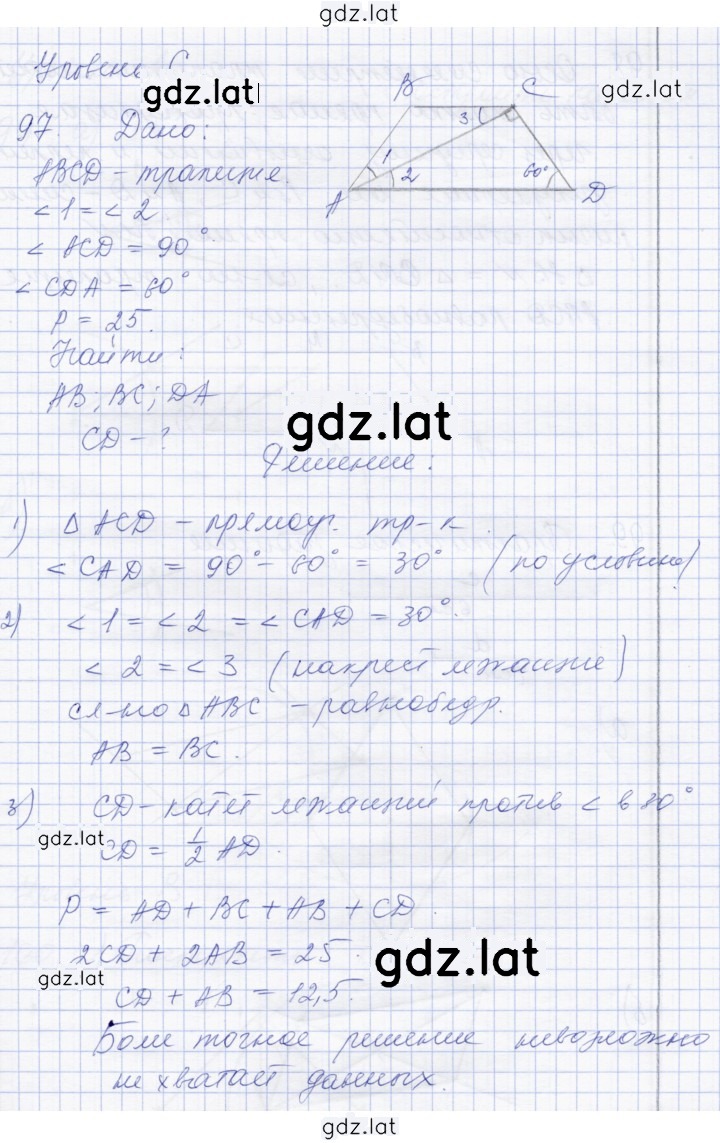 gdz.lat
Уровень C
gdz.lat
gdz.lat
97. Дано:
ABCD – трапеция.
∠1 = ∠2
∠ACD = 90°
∠CDA = 60°
P = 25.
Найти:
AB; BC; DA
CD – ?
B C
3
1
2 60°
A D
gdz.lat
Решение.
1) Δ ACD – прямоуг. тр-к.
∠CAD = 90° – 60° = 30° (по условию)
2) ∠1 = ∠2 = ∠CAD = 30°.
∠2 = ∠3 (накрест лежащие)
сл-но Δ ABC – равнобедр.
AB = BC.
3) CD – катет лежащий против ∠ в 30°
gdz.lat
CD = 1/2 AD.
P = AD + BC + AB + CD.
2CD + 2AB = 25.
gdz.lat
gdz.lat
CD + AB = 12,5.
Боле точное решение невозложно
не хватает данных.
gdz.lat